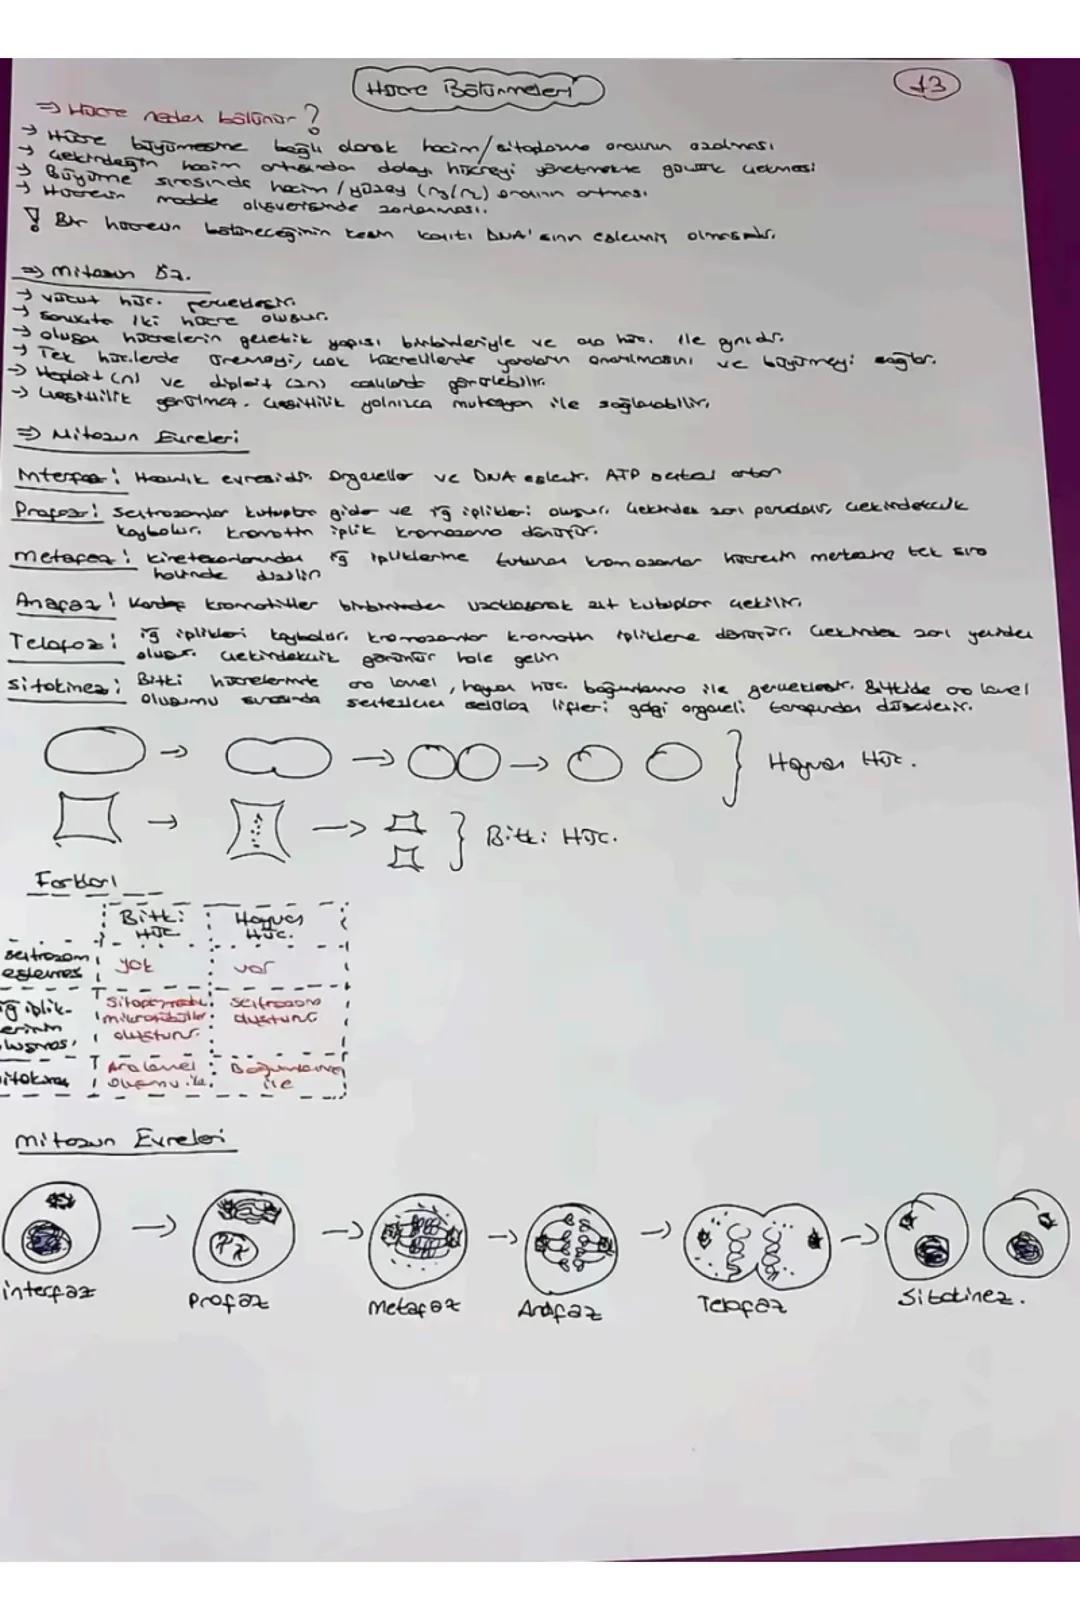 Hücre Bölünmeleri
13
⇒ Hücre neden bölünür?
→ Hücre büyümesine bağlı olarak hacim/sitoplazma oranının azalması
→ Çekirdeğin hacim artışından dolayı hücreyi yönetmekte güçlük çekmesi
→ Büyüme sırasında hacim/yüzey (r3/r2) oranının artması.
→ Hücrenin madde alışverişinde zorlanması.
! Bir hücrenin bölüneceğinin kesin kanıtı DNA'sının eşlenmiş olmasıdır.
⇒ Mitozun Öz.
→ Vücut hüc. gerçekleşir.
→ Sonuçta iki hücre oluşur.
→ Oluşan hücrelerin genetik yapısı birbirleriyle ve ana hüc. ile aynıdır.
→ Tek hüc.lerde üremeyi, çok hücrelilerde yaraların onarılmasını ve büyümeyi sağlar.
→ Haploit (n) ve diploit (2n) canlılarda görülebilir.
→ Çeşitlilik görülmez. Çeşitlilik yalnızca mutasyon ile sağlanabilir.
⇒ Mitozun Evreleri
İnterfaz: Hazırlık evresidir. Organeller ve DNA eşlenir. ATP sentezi artar
Profaz: Sentrozomlar kutuplara gider ve iğ iplikleri oluşur. Çekirdek zarı parçalanır, çekirdekçik
kaybolur. Kromatin iplik kromozoma dönüşür.
Metafaz: Kinetokorlarından iğ ipliklerine tutunan kromozomlar hücrenin merkezine tek sıra
halinde dizilir
Anafaz: Kardeş kromatitler birbirinden uzaklaşarak zıt kutuplara çekilir.
Telofaz: iğ iplikleri kaybolur. Kromozomlar kromatin ipliklere dönüşür. Çekirdek zarı yeniden
oluşur. Çekirdekçik görünür hale gelir
Sitokinez: Bitki hücrelerinde ara lamel, hayvan hüc. boğumlanma ile gerçekleşir. Bitkide ara lamel
oluşumu sırasında sentezlenen selüloz lifleri golgi organeli tarafından düzenlenir.
Hayvan Hüc.
Bitki Hüc.
Farkları
Bitki Hüc. Hayvan Hüc.
sentrozom eşlenmesi yok var
iğ iplik-
erinin
luşması Sitoplazmadaki mikrotübüller oluşturur. Sentrozom oluşturur
itokinez Ara lamel oluşumu ile. Boğumlanma ile
Mitozun Evreleri
interfaz Profaz Metafaz Anafaz Telofaz Sitokinez.